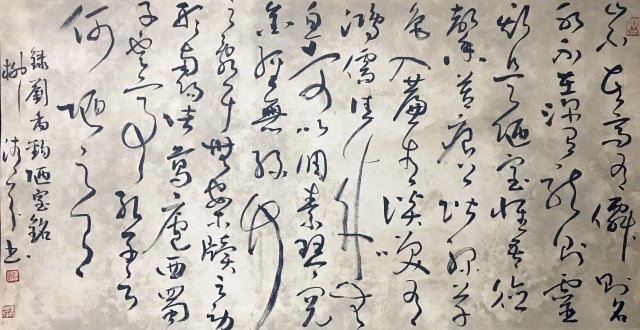 山不在高有僊則名
水不在深有龍則靈
斯是陋室惟吾德
馨苔痕上階綠草
色入簾青談笑有
鴻儒往來無白
丁可以調素琴閱
金經無絲竹
之亂耳無案牘之勞
形南陽諸葛廬西蜀
子雲亭孔子云
何陋之有
錄劉禹錫陋室銘